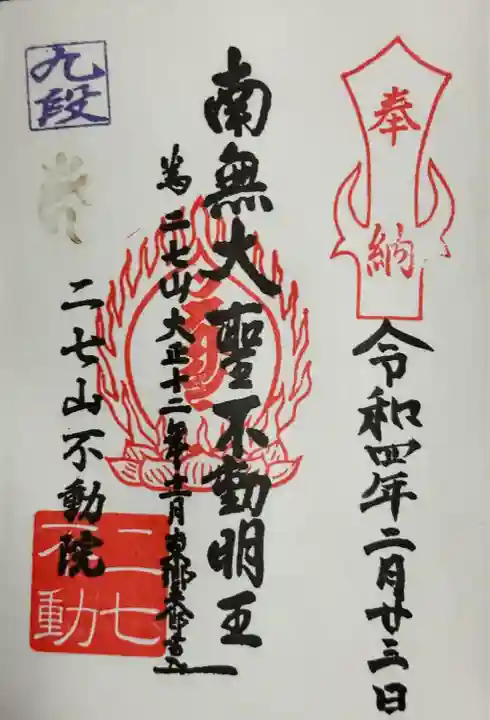 奉納
令和四年二月廿三日
南無大聖不動明王
二七山大正十二年十二月
二七山不動院
九段
二七
不動